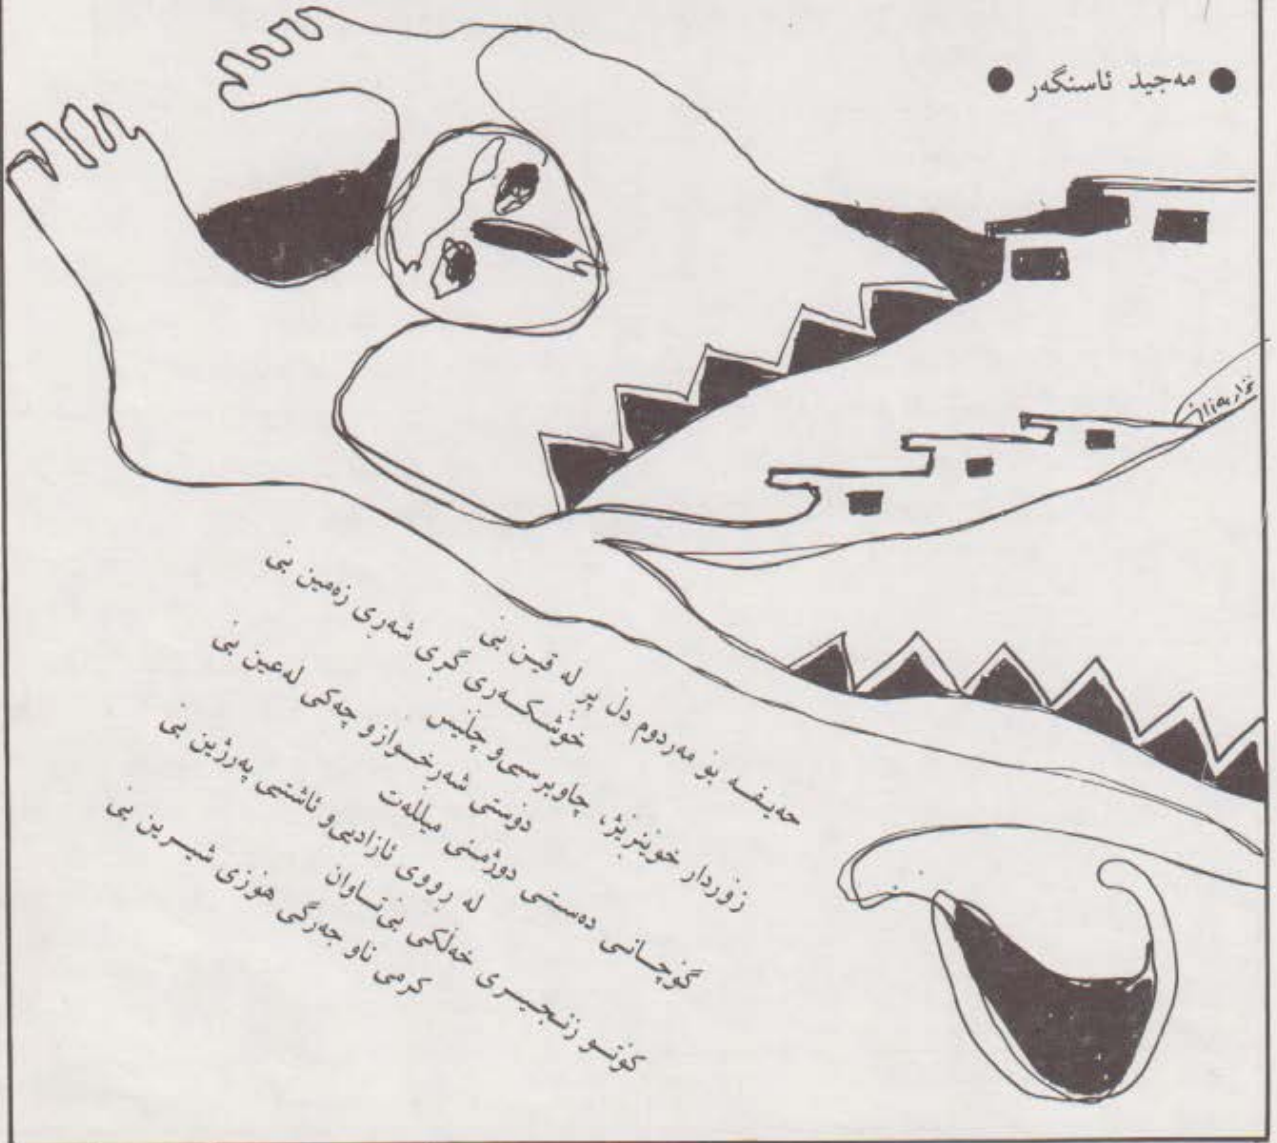 ● مەجید ئاسنگەر ●
حەیفە بۆ مەردوم دڵ پڕ لە قین بێ
خۆشکەری گڕی شەڕی زەمین بێ
زۆردار خوێنڕێژ، چاوبرسی و چڵێس
دۆستی شەڕخوازو چەکی لەعین بێ
گۆچانی دەستی دوژمنی میللەت
لە ڕووی ئازادیی و ئاشتیی پەرژین بێ
کۆتو زنجیری خەڵکی بێ‌تاوان
کرمی ناو جەرگی هۆزی شیرین بێ